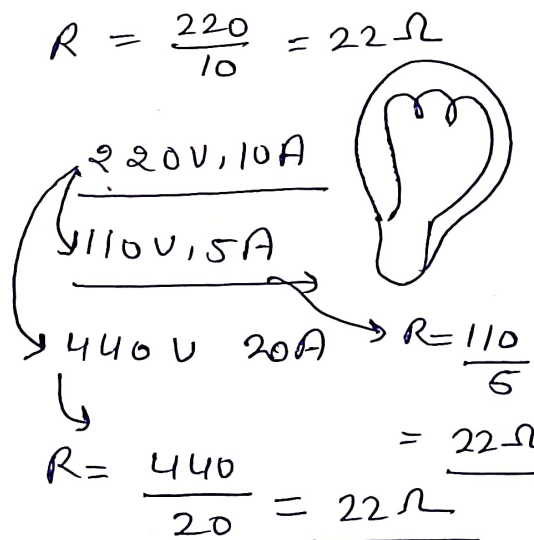 R = 220/10 = 22 Ω
220V, 10A
110V, 5A
440V 20A
R = 110/5
= 22Ω
R = 440/20 = 22 Ω